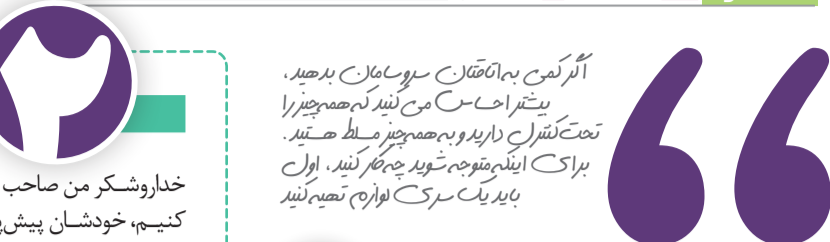 اگر کمی به اتاقتان سروسامان بدهید،
بیشتر احساس می کنید که همه چیز را
تحت کنترل دارید و به همه چیز مسلط هستید.
برای اینکه متوجه شوید چه کار کنید، اول
باید یک سری لوازم تهیه کنید
۲
خداروشکر من صاحب
کنیم، خودشان